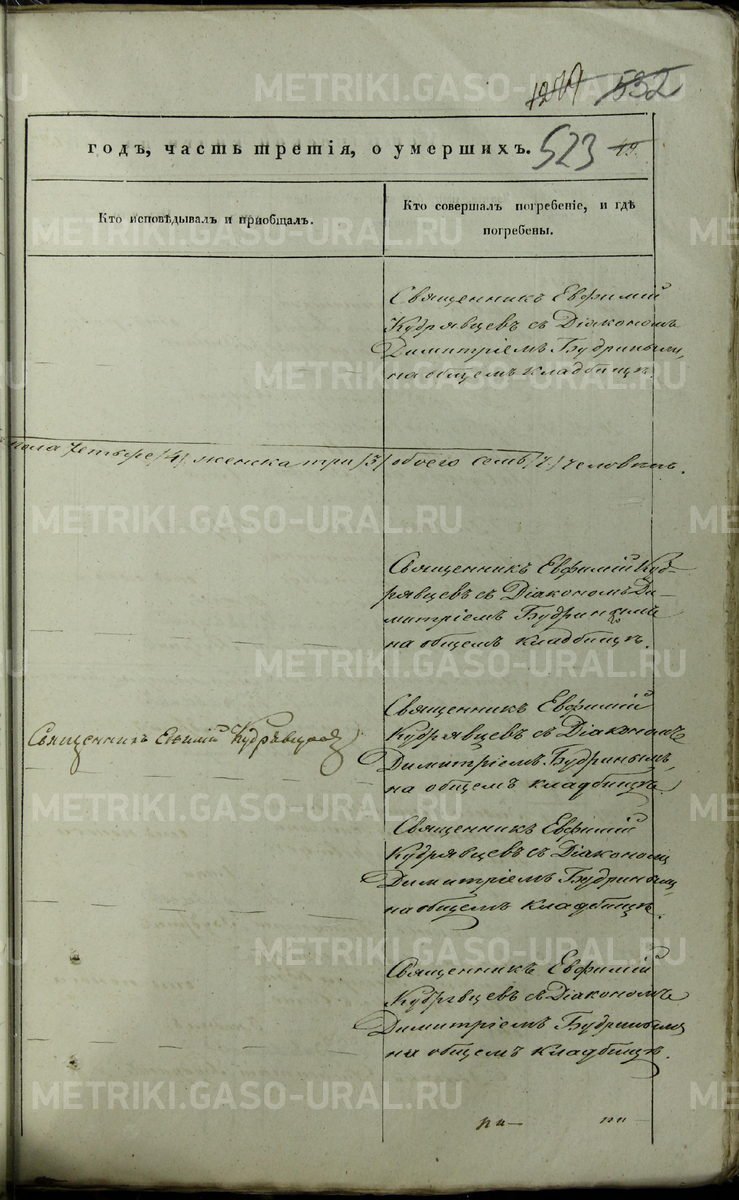 1279 532
годъ, часть третія, о умершихъ. 523 49.
Кто исповѣдывалъ и пріобщалъ.
Кто совершалъ погребеніе, и гдѣ
погребены.
Священникъ Евфимій
Кудрявцевъ съ Діакономъ
Димитріемъ Будринымъ,
на общемъ кладбищѣ.
пола четыре /4/ женска три /3/ обоего семь /7/ человѣкъ.
Священникъ Евфимій Куд-
рявцевъ съ Діакономъ Ди-
митріемъ Будринымъ
на общемъ кладбищѣ.
Священникъ Евѳимій Кудрявцевъ
Священникъ Евфимій
Кудрявцевъ съ Діакономъ
Димитріемъ Будринымъ,
на общемъ кладбищѣ.
Священникъ Евфимій
Кудрявцевъ съ Діакономъ
Димитріемъ Будринымъ,
на общемъ кладбищѣ.
Священникъ Евфимій
Кудрявцевъ съ Діакономъ
Димитріемъ Будринымъ
на общемъ кладбищѣ.
METRIKI.GASO-URAL.RU